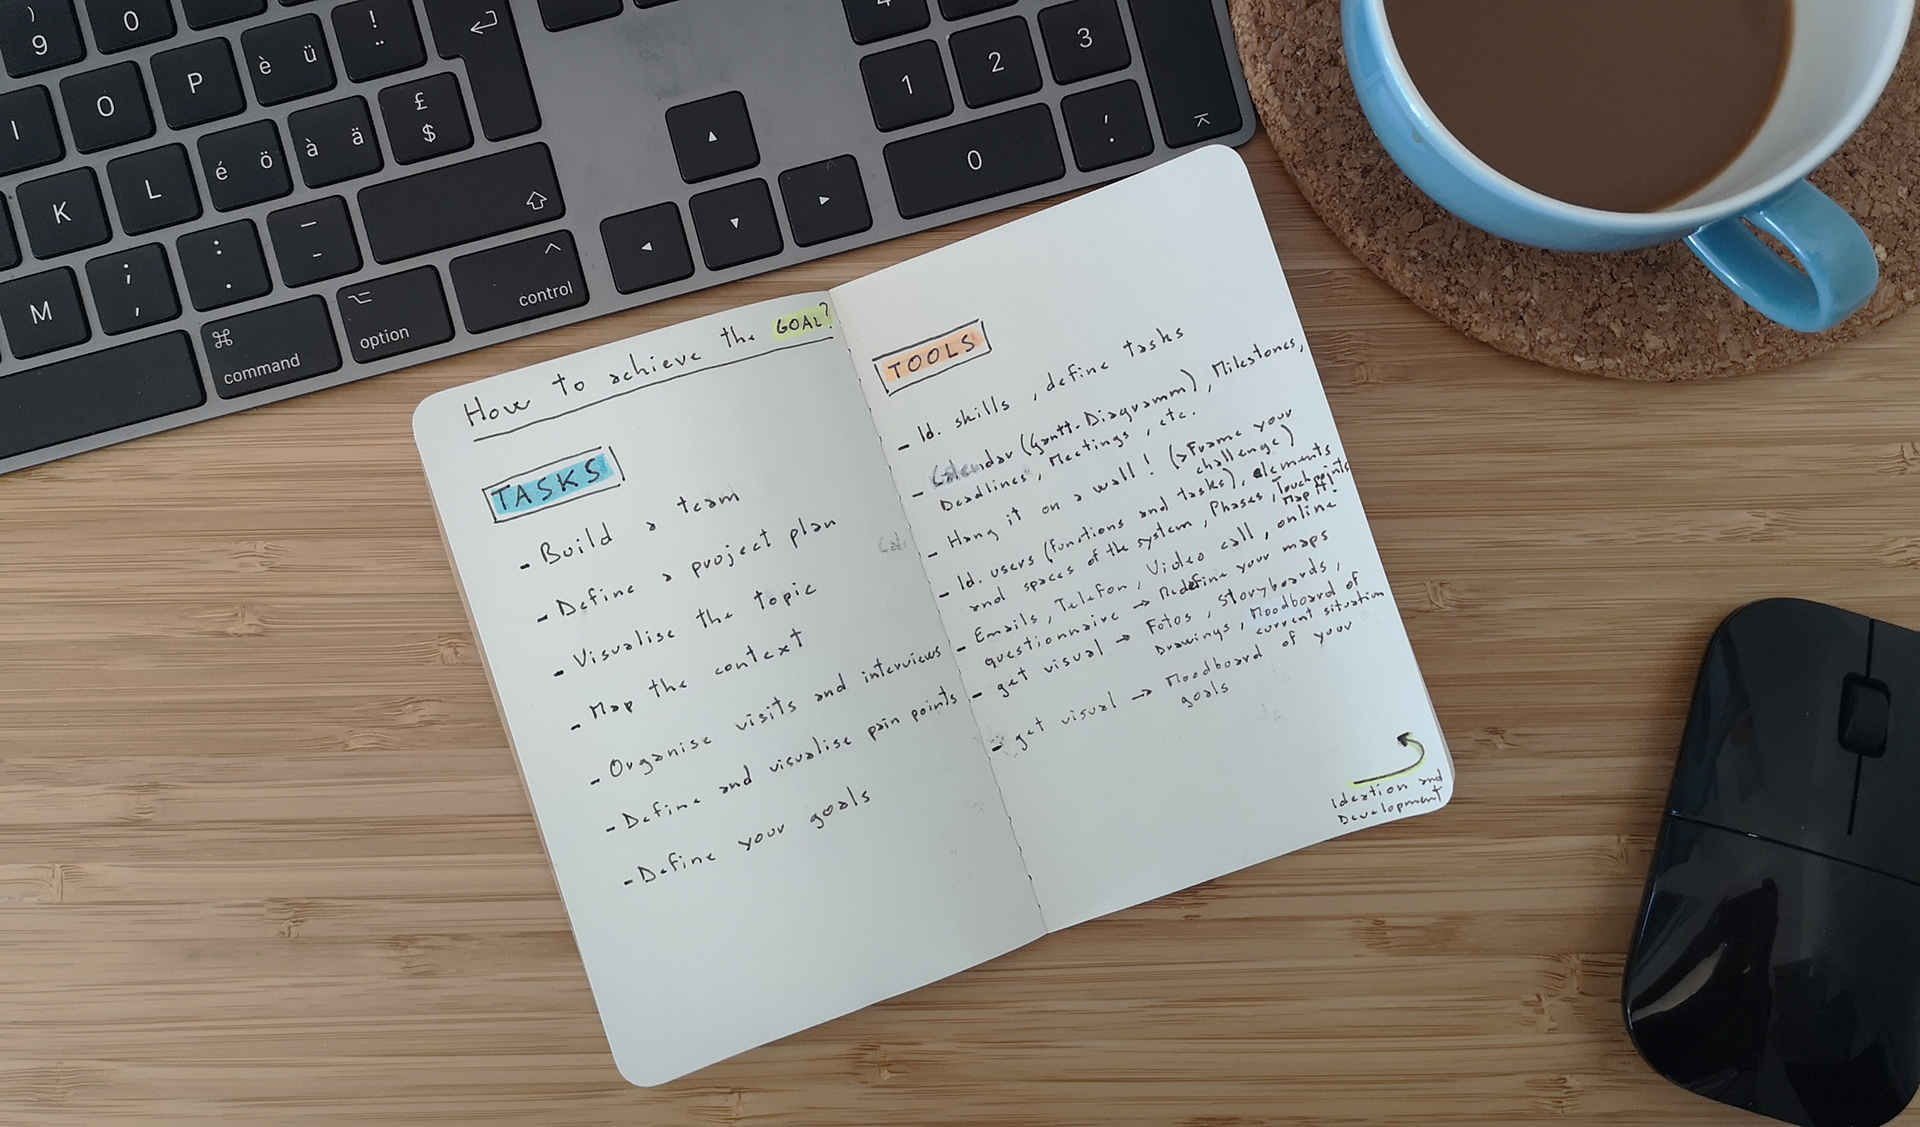 )
9
0
!
¨
I
O
P
è ü
£
$
K
L
é ö
à ä
M
;
,
:
.
_
-
⌘
command
⌥
option
^
control
4
1
2
3
0
'
.
How to achieve the GOAL?
TASKS
- Build a team
- Define a project plan
- Visualise the topic
- Map the context
- Organise visits and interviews
- Define and visualise pain points
- Define your goals
TOOLS
- Id. skills, define tasks
- Calendar (Gantt-Diagramm), Milestones,
Deadlines, Meetings, etc.
- Hang it on a wall! (>Frame your
challenge)
- Id. users (functions and tasks), elements
and spaces of the system, Phases, Touchpoints
Map it!
- Emails, Telefon, Video call, online
questionnaire → Redefine your maps
- get visual → Fotos, Storyboards,
Drawings, Moodboard of
current situation
- get visual → Moodboard of your
goals
Ideation and
Development